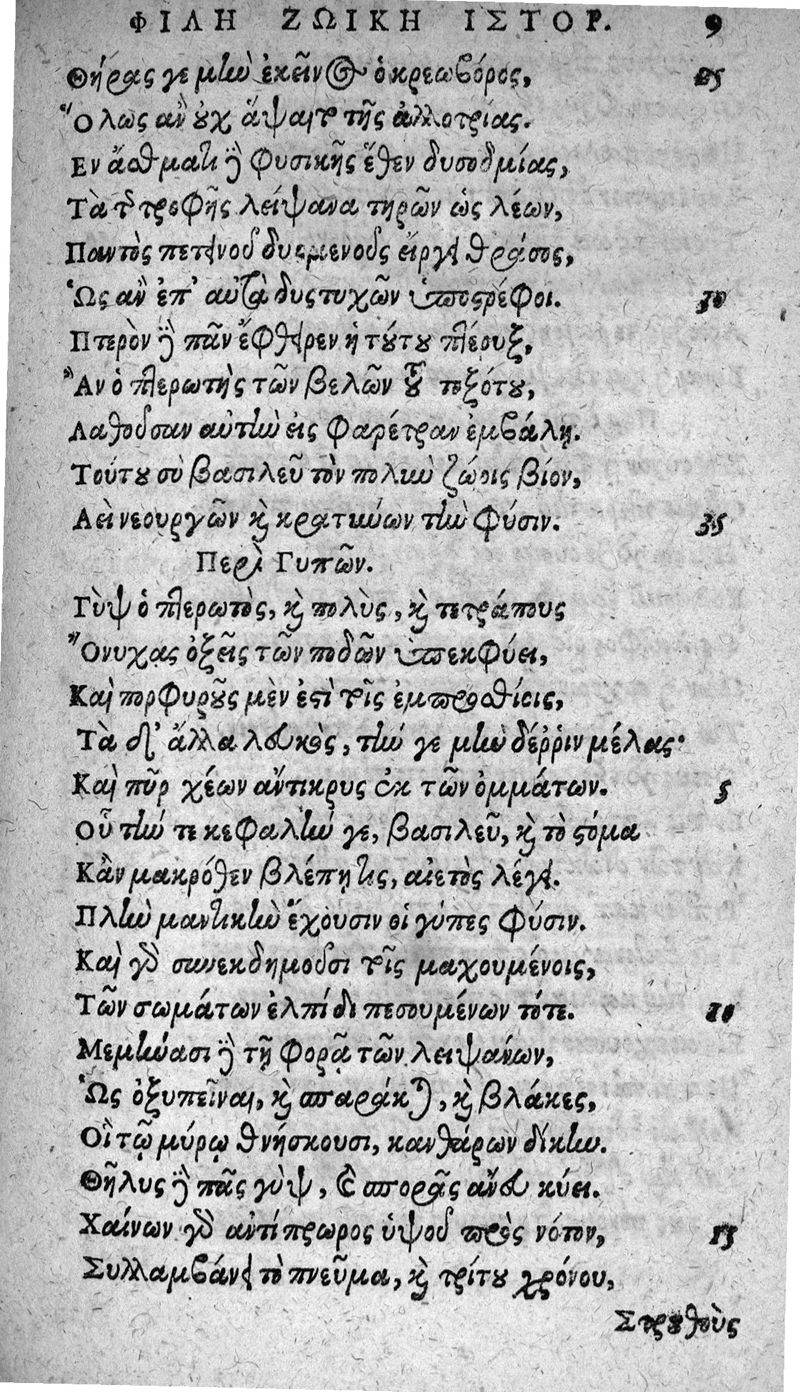 ΦΙΛΗ ΖΩΙΚΗ ΙΣΤΟΡ. 9
Θήρας γε μὴν ἐκεῖνος ὁ κρεωβόρος, 25
Ὅλως ἂν οὐχ ἅψαιτο τῆς ἀλλοτρίας.
Εν ἄσθματι δὲ φυσικῆς ἕθεν δυσοδμίας,
Τὰ τῆς τροφῆς λείψανα τηρῶν ὡς λέων,
Παντὸς πετεινοῦ δυσμενοῦς εἴργει θράσος,
Ὡς ἂν ἐπ' αὐτὰ δυςτυχῶν ὑποστρέφοι. 30
Πτερὸν δὲ πᾶν ἔφθειρεν ἡ τούτου πτέρυξ,
Ἂν ὁ πτερωτὴς τῶν βελῶν τοῦ τοξότου,
Λαθοῦσαν αὐτὴν εἰς φαρέτραν ἐμβάλῃ.
Τούτου σὺ βασιλεῦ τὸν πολιὸν ζώοις βίον,
Αεὶ νεουργῶν καὶ κρατύνων τὴν φύσιν. 35
Περὶ Γυπῶν.
Γὺψ ὁ πτερωτὸς, καὶ πολὺς, καὶ τετράπους
Ὄνυχας ὀξεῖς τῶν ποδῶν ὑπεκφύει,
Καὶ πορφυροῦς μὲν ἐστὶ τοῖς ἐμπροσθίοις,
Τὰ δ' ἄλλα λευκὸς, τήν γε μὴν δέῤῥιν μέλας·
Καὶ πῦρ χέων ἄντικρυς ἐκ τῶν ὀμμάτων. 5
Οὗ τήν τε κεφαλήν γε, βασιλεῦ, καὶ τὸ στόμα
Κἂν μακρόθεν βλέπῃ τις, αἰετὸς λέγει.
Πλὴν μαντικὴν ἔχουσιν οἱ γύπες φύσιν.
Καὶ γὰρ συνεκδημοῦσι τοῖς μαχουμένοις,
Τῶν σωμάτων ἐλπίδι πεσουμένων τότε. 10
Μεμήνασι δὲ τῇ φορᾷ τῶν λειψάνων,
Ὡς ὀξυπεῖναι, καὶ σπαράκται, καὶ βλάκες,
Οἳ τῷ μύρῳ θνήσκουσι, κανθάρων δίκην.
Θῆλυς δὲ πᾶς γὺψ, καὶ σπορᾶς ἄνευ κύει.
Χαίνων γὰρ ἀντίπρωρος ὑψοῦ πρὸς νότον, 15
Συλλαμβάνει τὸ πνεῦμα, καὶ τρίτου χρόνου,
Στρουθοὺς